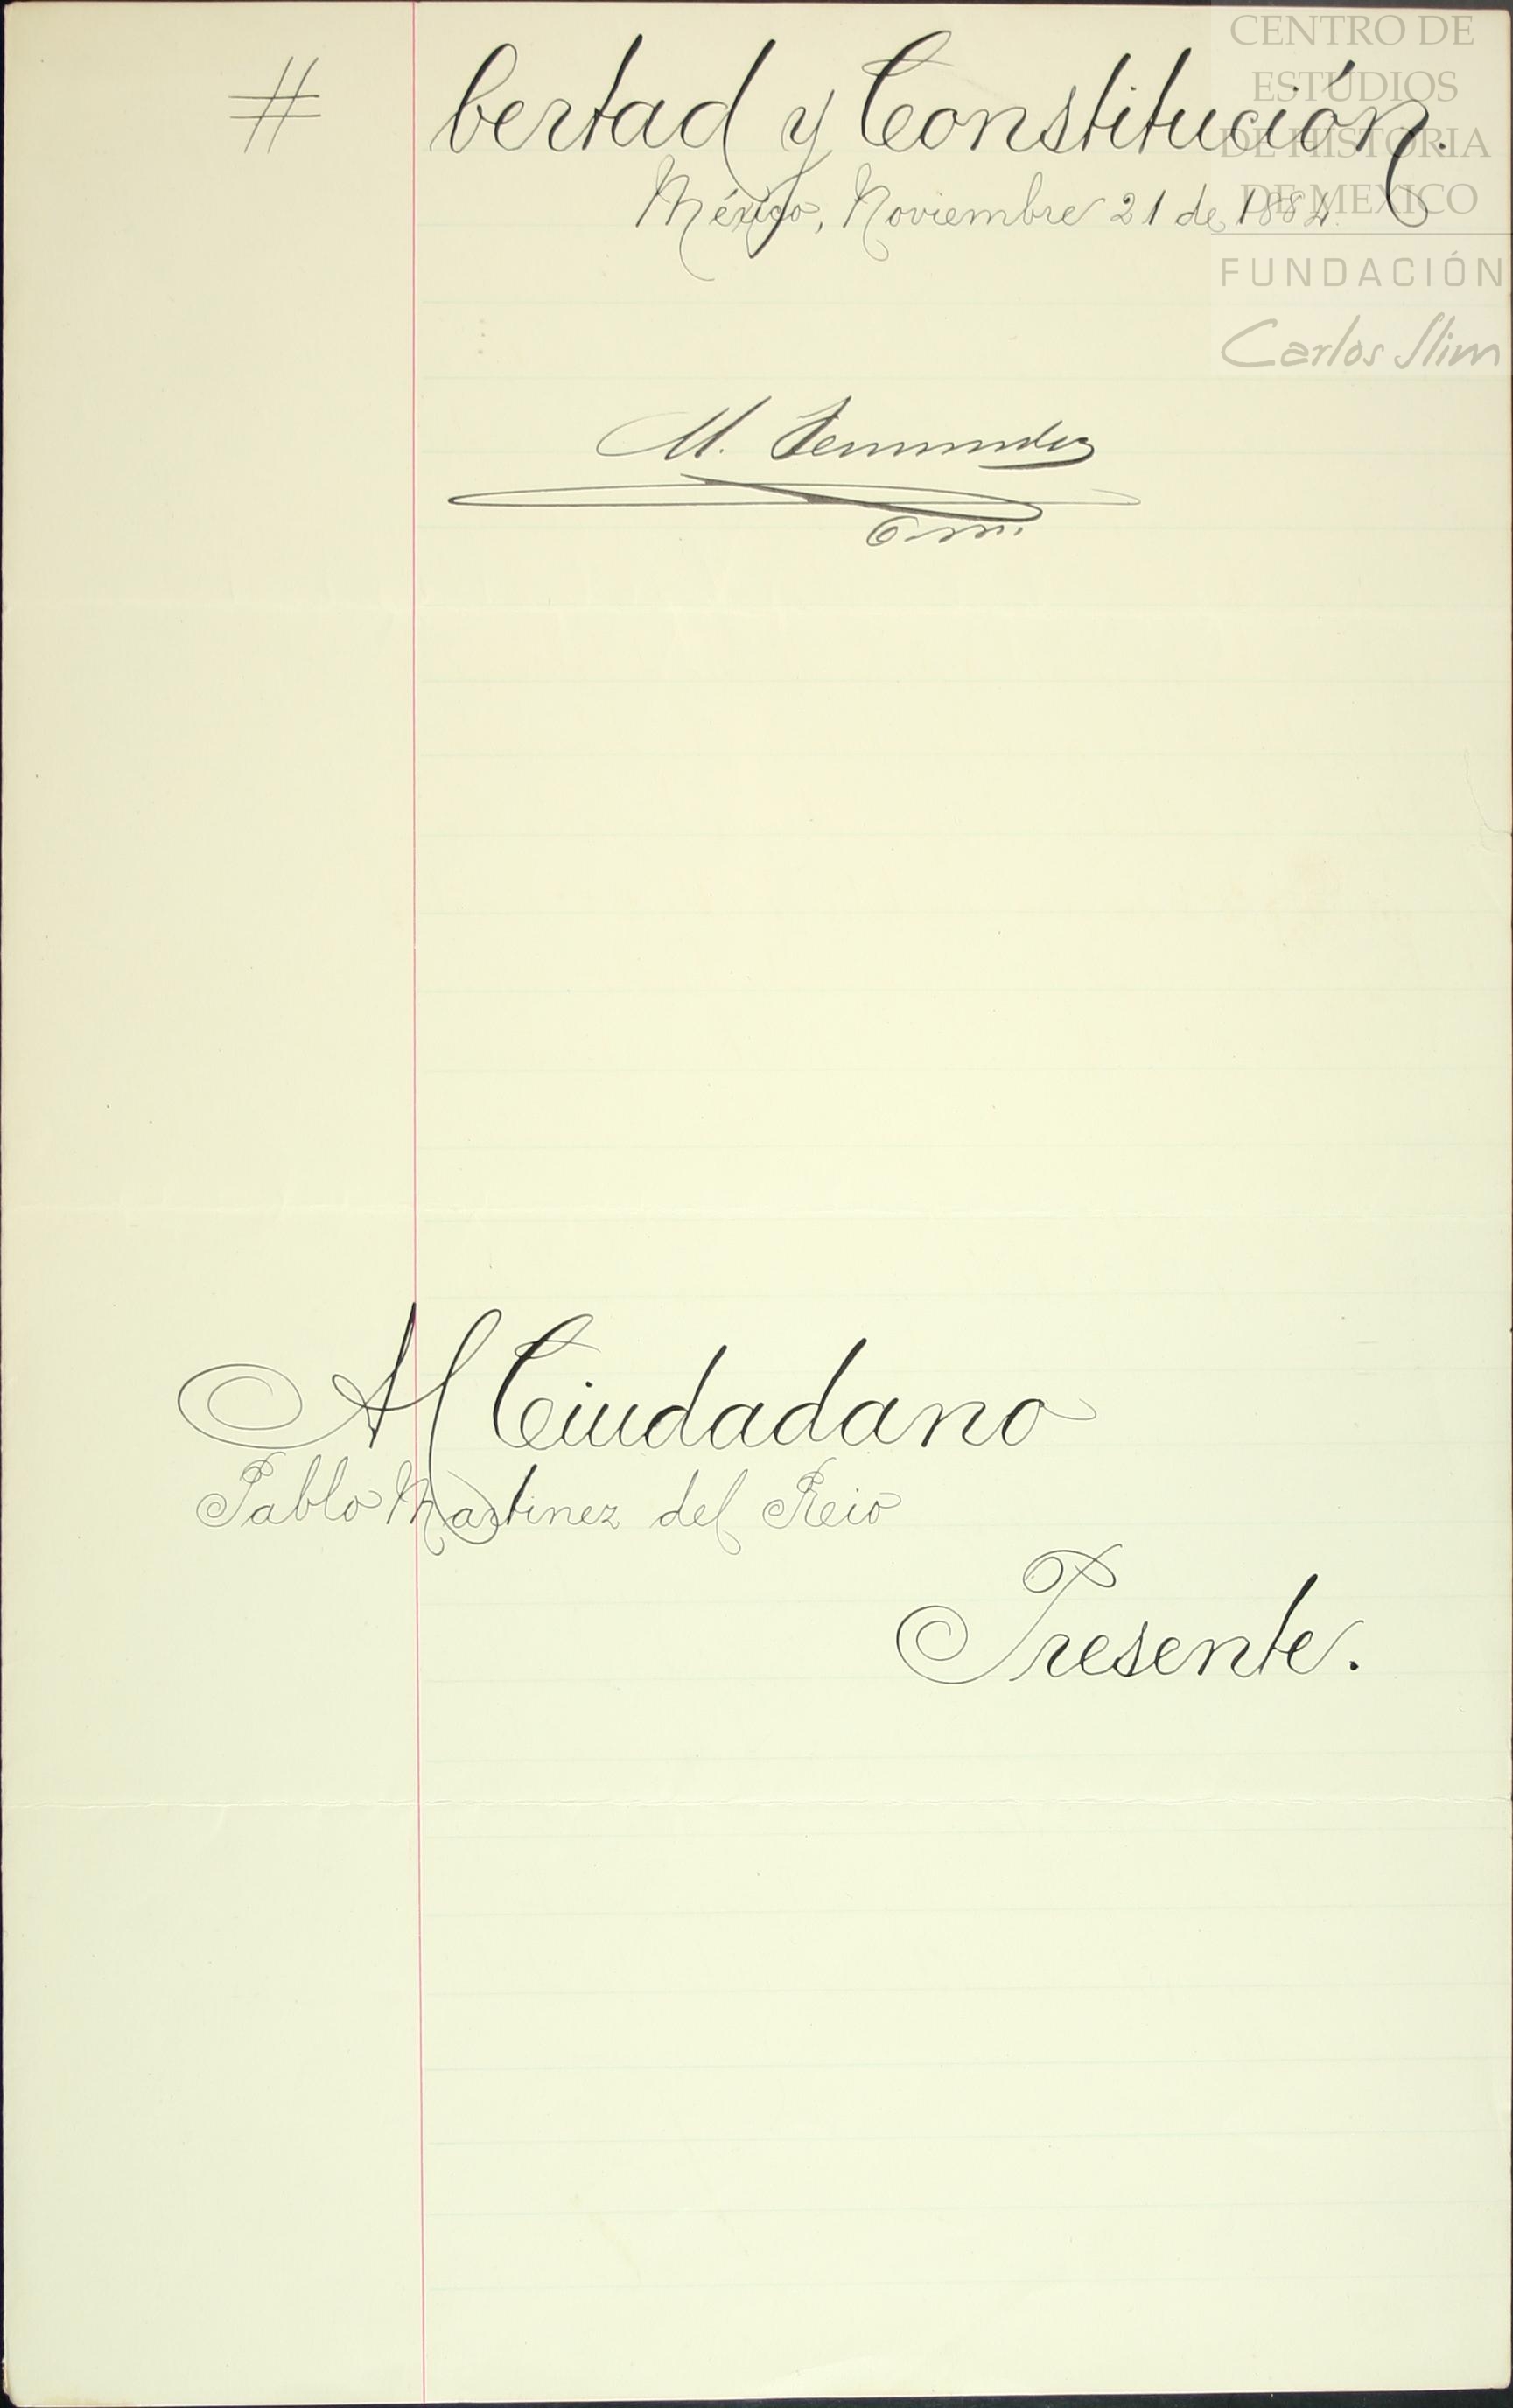 # bertad y Constitución.
México, Noviembre 21 de 1884.
M. Fernandez
O. m.
Al Ciudadano
Pablo Martinez del Reio
Presente.
CENTRO DE
ESTUDIOS
DE HISTORIA
DE MEXICO
FUNDACIÓN
Carlos Slim